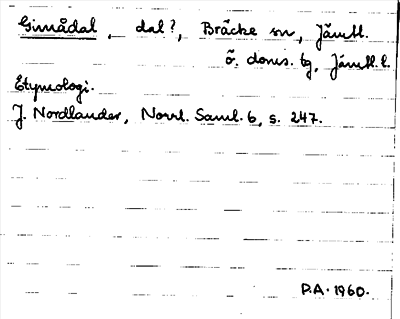 Gimådal, dal?, Bräcke sn, Jämtl.
ö. doms. tg, Jämtl. l.
Etymologi.
J. Nordlander, Norrl. Saml. 6, s. 247.
P.A. 1960.